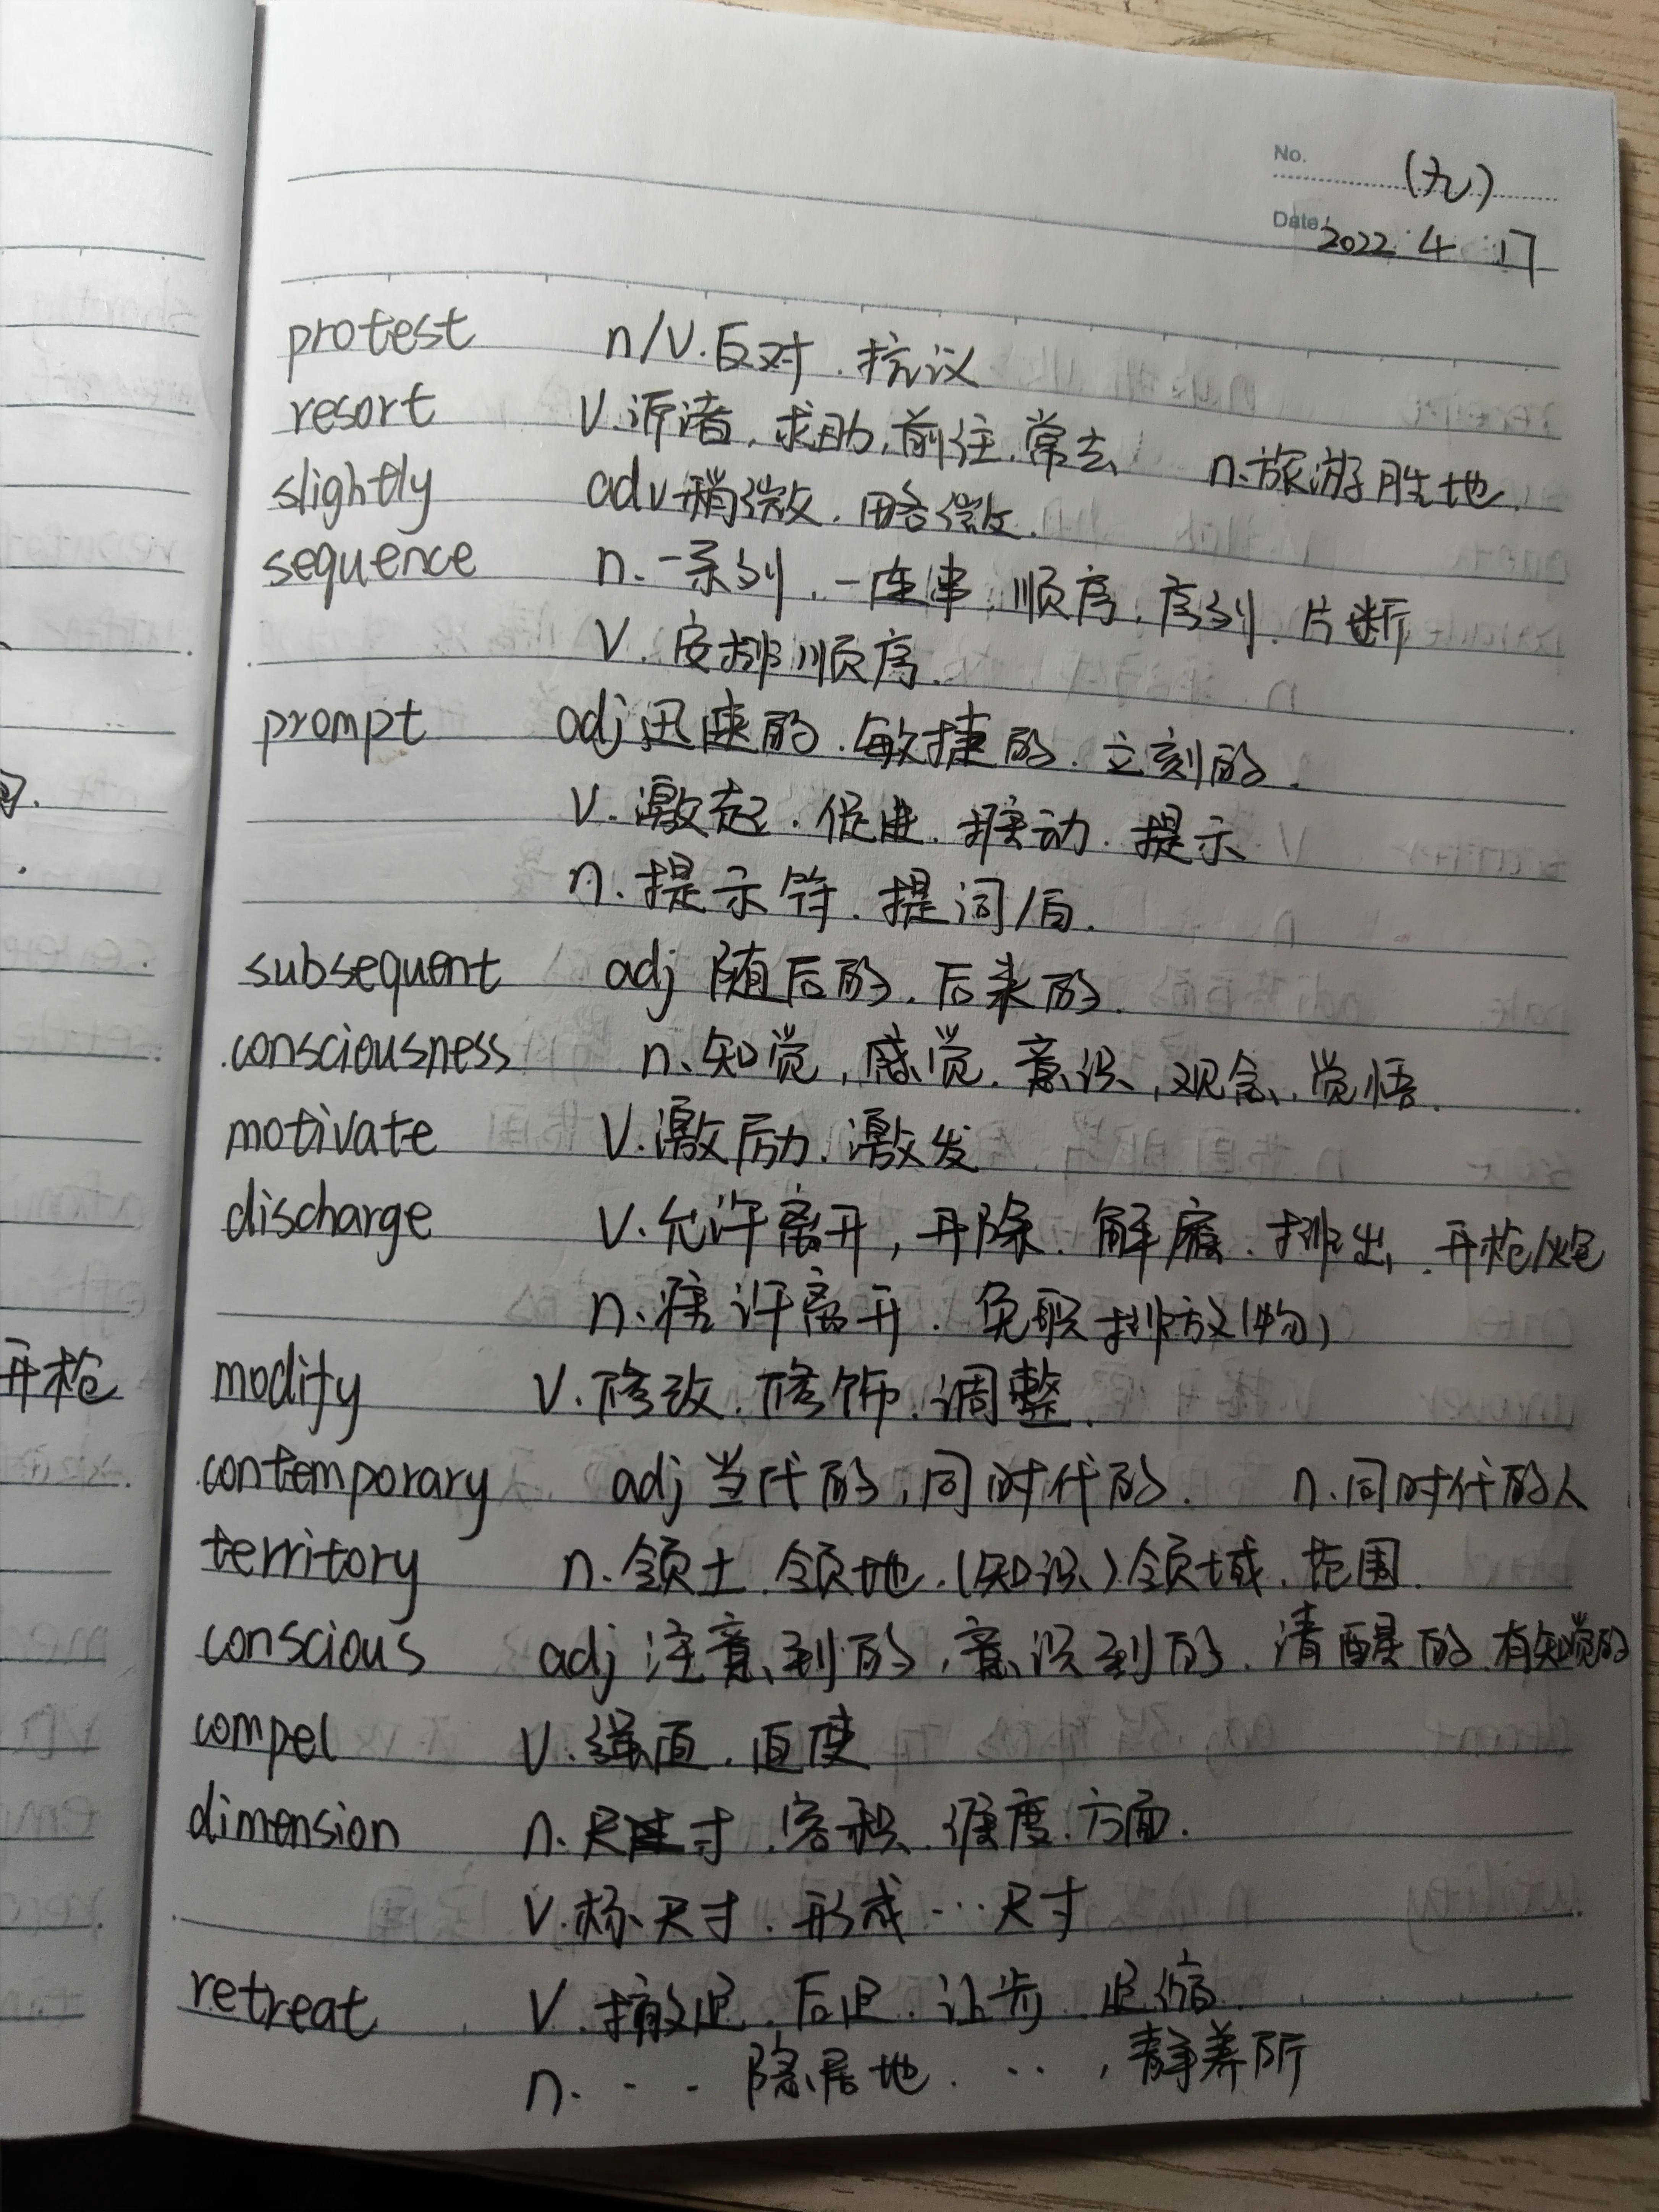 No. (九)
Date 2022.4.17
protest n/v.反对.抗议
resort v.诉诸,求助,前往,常去 n.旅游胜地.
slightly adv稍微.略微.
sequence n.一系列.一连串.顺序.序列.片断
v.安排顺序.
prompt adj迅速的.敏捷的.立刻的.
v.激起.促进.推动.提示
n.提示符.提词/白.
subsequent adj 随后的.后来的.
consciousness n.知觉,感觉.意识,观念,觉悟.
motivate v.激励.激发
discharge v.允许离开,开除.解雇.排出.开枪/炮
n.准许离开.免职 排放(物)
开枪
modify v.修改.修饰.调整.
contemporary adj 当代的,同时代的. n.同时代的人
territory n.领土.领地.(知识)领域.范围.
conscious adj 注意到的,意识到的.清醒的.有知觉的
compel v.强迫.迫使
dimension n.尺寸.容积.维度.方面.
v.标尺寸.形成…尺寸
retreat v.撤退.后退.让步.退缩.
n... 隐居地...,静养所